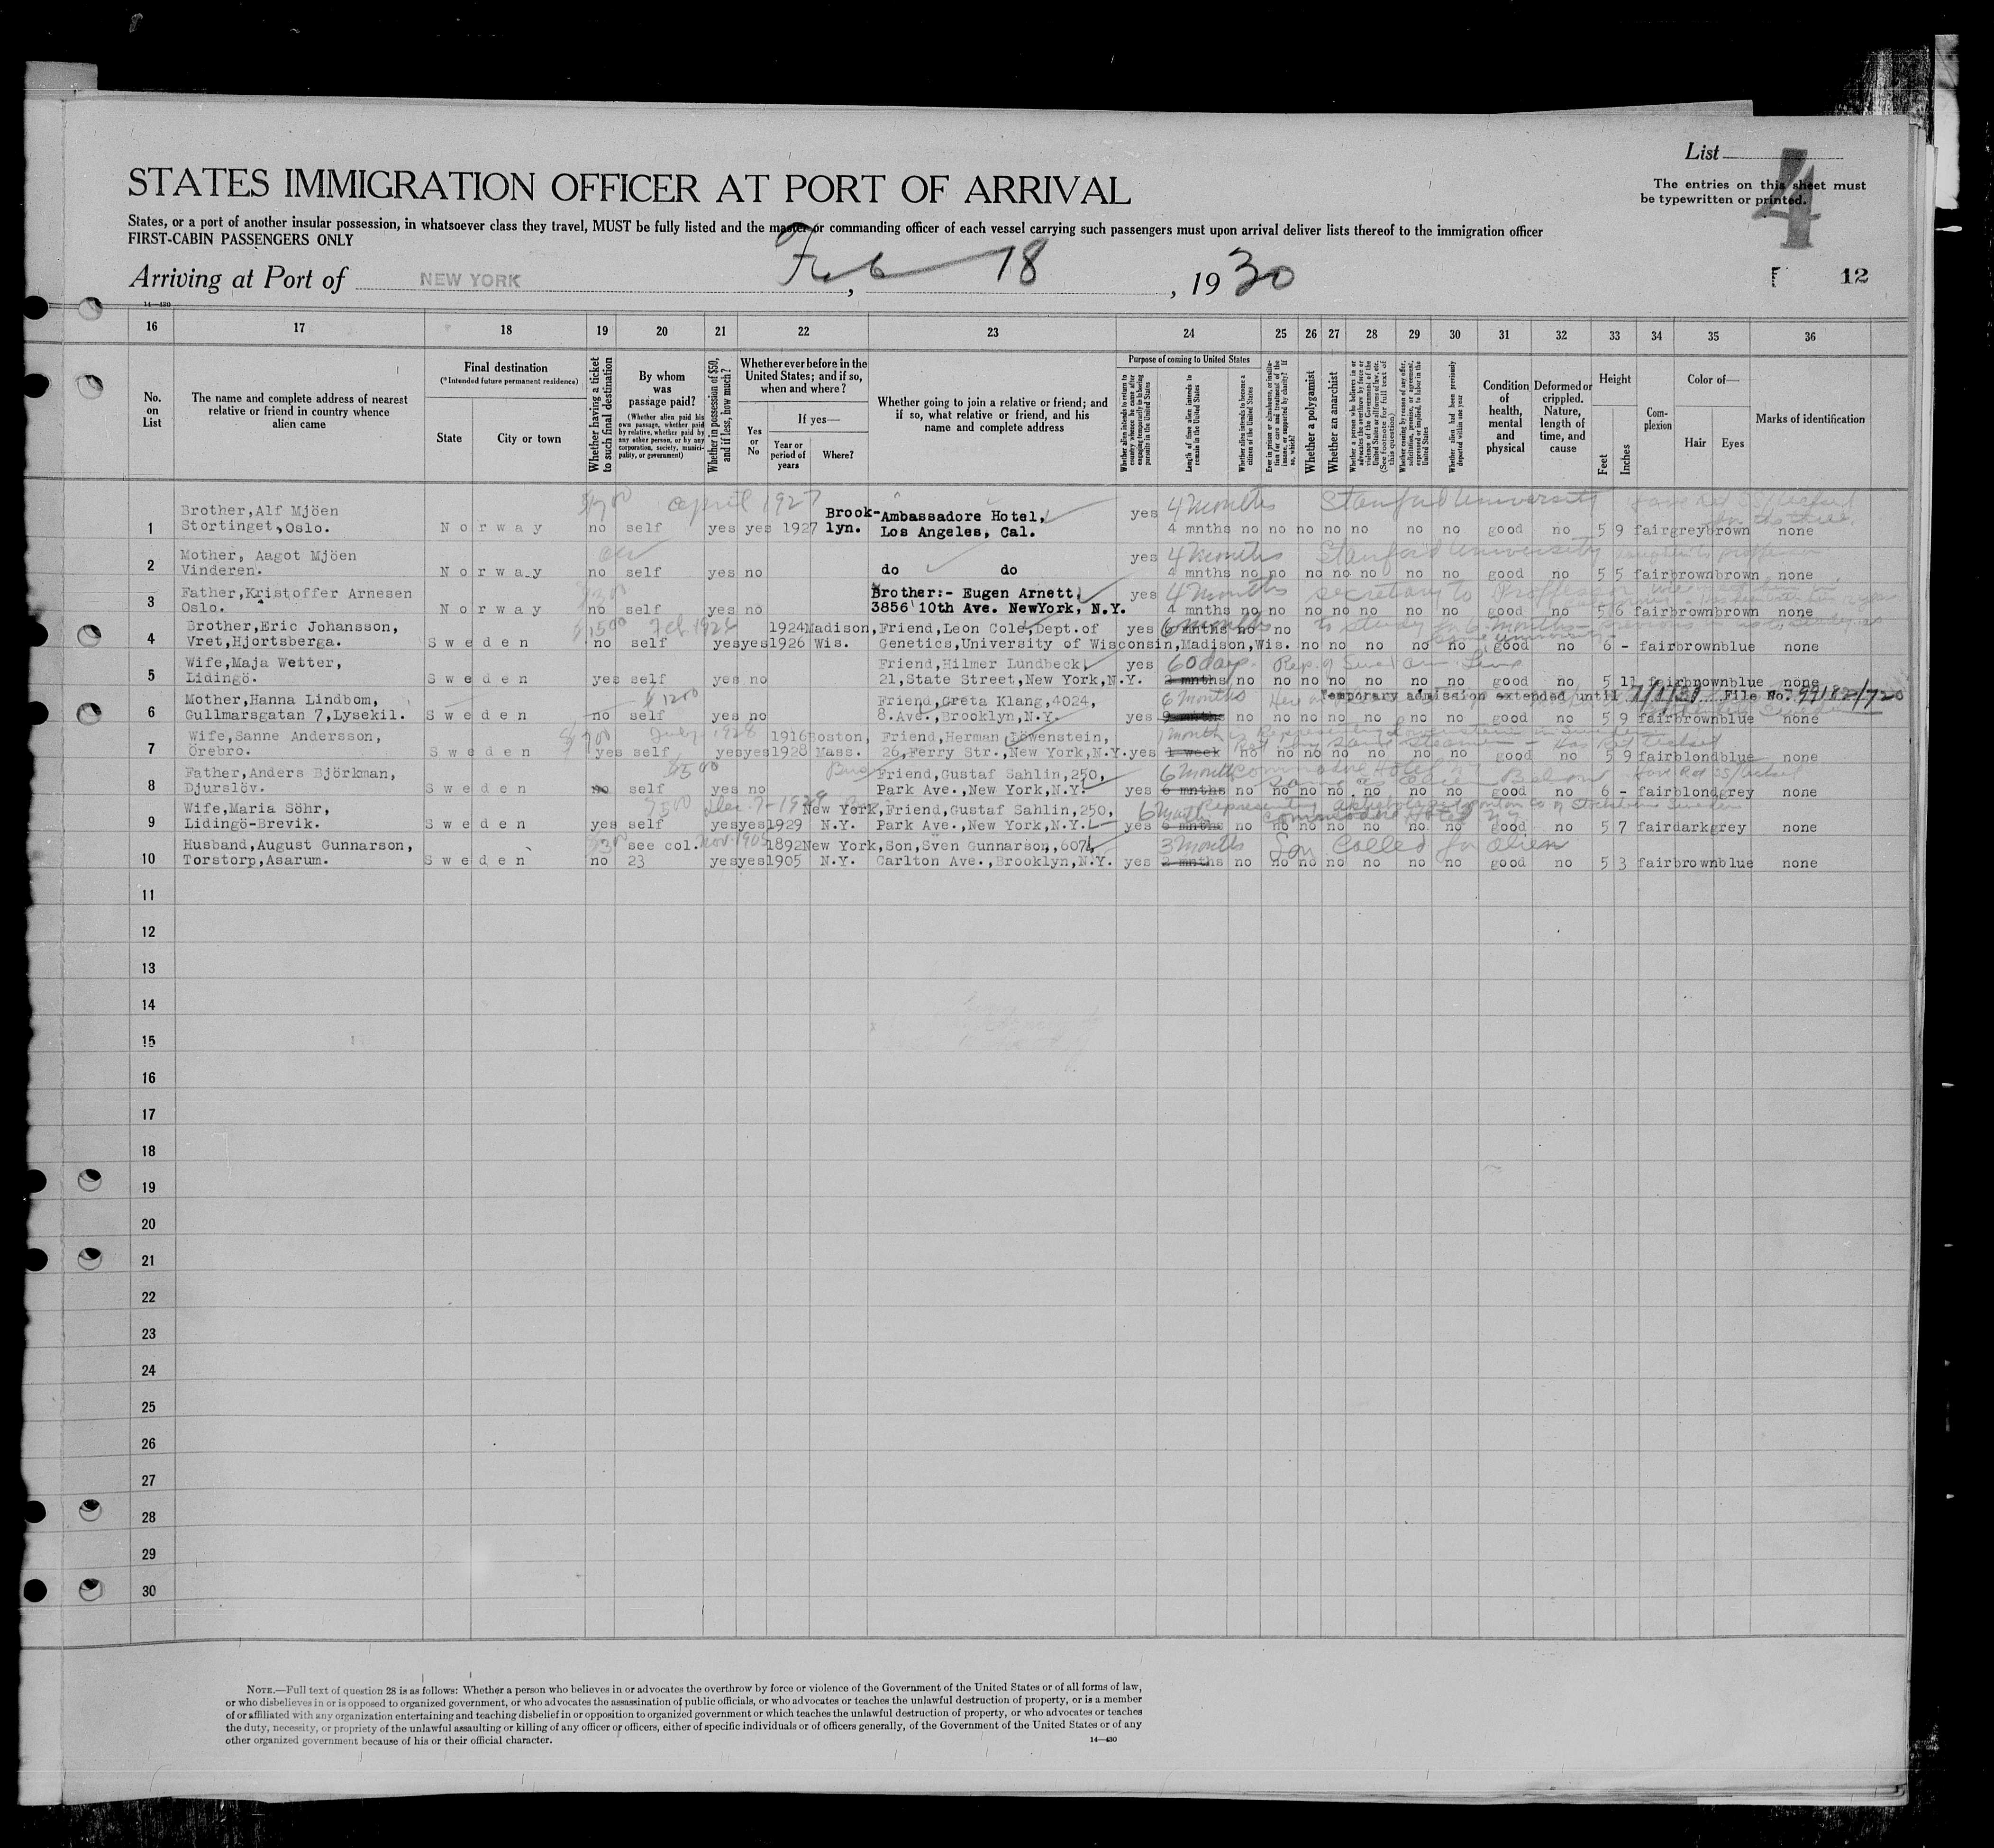 List 4
STATES IMMIGRATION OFFICER AT PORT OF ARRIVAL
The entries on this sheet must
be typewritten or printed.
States, or a port of another insular possession, in whatsoever class they travel, MUST be fully listed and the master or commanding officer of each vessel carrying such passengers must upon arrival deliver lists thereof to the immigration officer
FIRST-CABIN PASSENGERS ONLY
Arriving at Port of NEW YORK, Feb 18, 1930
12
14—430
16 17 18 19 20 21 22 23 24 25 26 27 28 29 30 31 32 33 34 35 36
No. on List
The name and complete address of nearest relative or friend in country whence alien came
Final destination (*Intended future permanent residence)
State
City or town
Whether having a ticket to such final destination
By whom was passage paid? (Whether alien paid his own passage, whether paid by relative, whether paid by any other person, or by any corporation, society, municipality, or government)
Whether in possession of $50, and if less, how much?
Whether ever before in the United States; and if so, when and where?
Yes or No
If yes—
Year or period of years
Where?
Whether going to join a relative or friend; and if so, what relative or friend, and his name and complete address
Purpose of coming to United States
Whether alien intends to return to country whence he came after engaging temporarily in laboring pursuits in the United States
Length of time alien intends to remain in the United States
Whether alien intends to become a citizen of the United States
Ever in prison or almshouse, or institution for care and treatment of the insane, or supported by charity? If so, which?
Whether a polygamist
Whether an anarchist
Whether a person who believes in or advocates the overthrow by force or violence of the Government of the United States or all forms of law, etc. (See footnote for full text of this question)
Whether coming by reason of any offer, solicitation, promise, or agreement, expressed or implied, to labor in the United States
Whether alien had been previously deported within one year
Condition of health, mental and physical
Deformed or crippled. Nature, length of time, and cause
Height
Feet
Inches
Complexion
Color of—
Hair
Eyes
Marks of identification
April 1927 4 months Stanford University
Brother,Alf Mjöen Brook- Ambassadore Hotel, yes
1 Stortinget,Oslo. Norway no self yes yes 1927 lyn. Los Angeles, Cal. 4 mnths no no no no no no no good no 5 9 fair grey brown none
Mother, Aagot Mjöen yes 4 months Stanford University
2 Vinderen. Norway no self yes no do do 4 mnths no no no no no no no good no 5 5 fair brown brown none
Father,Kristoffer Arnesen Brother:- Eugen Arnett, yes 4 months secretary to Professor
3 Oslo. Norway no self yes no 3856 10th Ave. NewYork, N.Y. 4 mnths no no no no no no no good no 5 6 fair brown brown none
Brother,Eric Johansson, $1500 Feb 1924 Madison, Friend,Leon Cole,Dept.of yes 6 months no no to study for 6 months
4 Vret,Hjortsberga. Sweden no self yes yes 1926 Wis. Genetics,University of Wisconsin,Madison,Wis. no no no no no good no 6 - fair brown blue none
Wife,Maja Wetter, Friend,Hilmer Lundbeck, yes 60 days. Rep. of Swed Am. Line
5 Lidingö. Sweden yes self yes no 21,State Street,New York,N.Y. 2 mnths no no no no no no no good no 5 11 fair brown blue none
Mother,Hanna Lindbom, $1200 Friend,Greta Klang,4024, 6 months Temporary admission extended until 7/1/31 File No. 99182/720
6 Gullmarsgatan 7,Lysekil. Sweden no self yes no 8.Ave.,Brooklyn,N.Y. yes no no no no no no no good no 5 9 fair brown blue none
Wife,Sanne Andersson, July 1928 1916 Boston, Friend,Herman Löwenstein, 1 month
7 Örebro. Sweden yes self yes yes 1928 Mass. 26,Ferry Str.,New York,N.Y. yes 1 week no no no no no no no good no 5 9 fair blond blue none
Father,Anders Björkman, $500 Friend,Gustaf Sahlin,250, 6 months Commodore Hotel
8 Djurslöv. Sweden no self yes no Park Ave.,New York,N.Y. yes 6 mnths no no no no no no no good no 6 - fair blond grey none
Wife,Maria Söhr, Dec. New York, Friend,Gustaf Sahlin,250, 6 months Commodore Hotel NY
9 Lidingö-Brevik. Sweden yes self yes yes 1929 N.Y. Park Ave.,New York,N.Y. yes 6 mnths no no no no no no no good no 5 7 fair dark grey none
Husband,August Gunnarson, see col. Nov. 1905 1892 New York, Son,Sven Gunnarson,607, 3 months Son Called for alien
10 Torstorp,Asarum. Sweden no 23 yes yes 1905 N.Y. Carlton Ave.,Brooklyn,N.Y. yes 2 mnths no no no no no no no good no 5 3 fair brown blue none
11
12
13
14
15
16
17
18
19
20
21
22
23
24
25
26
27
28
29
30
NOTE.—Full text of question 28 is as follows: Whether a person who believes in or advocates the overthrow by force or violence of the Government of the United States or of all forms of law,
or who disbelieves in or is opposed to organized government, or who advocates the assassination of public officials, or who advocates or teaches the unlawful destruction of property, or is a member
of or affiliated with any organization entertaining and teaching disbelief in or opposition to organized government or which teaches the unlawful destruction of property, or who advocates or teaches
the duty, necessity, or propriety of the unlawful assaulting or killing of any officer or officers, either of specific individuals or of officers generally, of the Government of the United States or of any
other organized government because of his or their official character.
14—430